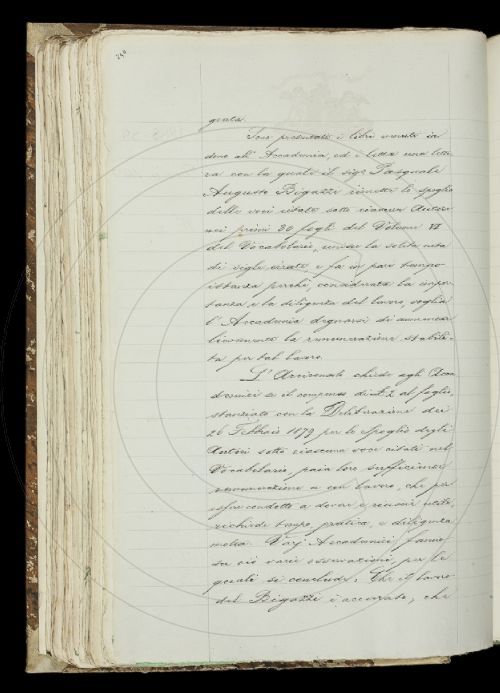 240
giata.
Sono presentati i libri venuti in
dono all'Accademia, ed è letta una lette-
ra con la quale il sigr. Pasquale
Augusto Bigazzi rimette lo spoglio
delle voci citate sotto ciascun Autore
nei primi 30 fogli del Volume VI
del Vocabolario, unisce la solita nota
di voglie e fa in pari tempo
istanza perchè, considerata la impor-
tanza e la diligenza del lavoro, voglia
l'Accademia degnarsi di aumentar
lievemente la remunerazione stabili-
ta per tal lavoro.
L'Arciconsolo chiede agli Acca-
demici se il compenso di £ 2 al foglio,
stanziato con la Deliberazione dei
26 Febbraio 1879 per lo Spoglio degli
Autori sotto ciascuna voce citati nel
Vocabolario, paia loro sufficiente
remunerazione a un lavoro, che per
esser condotto a dovere e riuscir utile,
richiede tempo, pratica, e diligenza
molta. Varj Accademici fanno
su ciò varie osservazioni, per le
quali si conclude: Che il lavoro
del Bigazzi è accurato, che